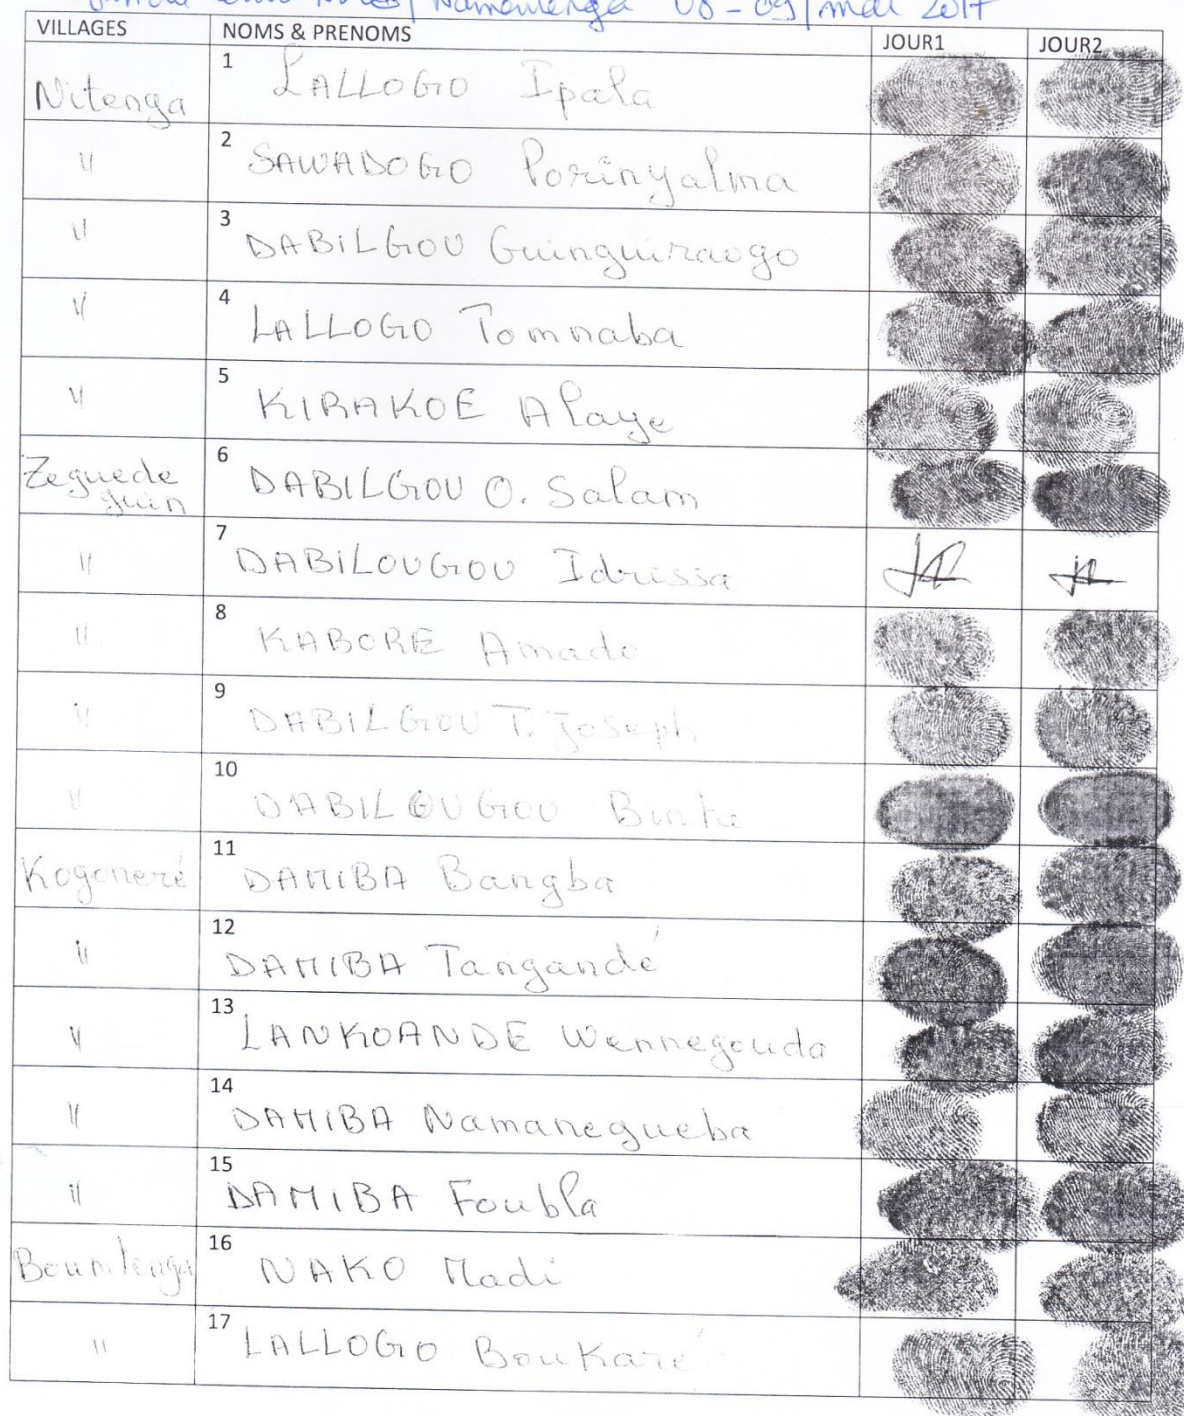 Namentenga 08-09/mai 2017
VILLAGES NOMS & PRENOMS JOUR1 JOUR2
Nitenga 1 LALLOGO Ipala
" 2 SAWADOGO Porinyalma
" 3 DABILGOU Guinguiraogo
" 4 LALLOGO Tomnaba
" 5 KIRAKOE Alaye
Zeguede
guin 6 DABILGOU O. Salam
" 7 DABILOUGOU Idrissa
" 8 KABORE Amado
" 9 DABILGOU T. Joseph
" 10 DABILOUGOU Binta
Kogoneré 11 DAMIBA Bangba
" 12 DAMIBA Tangandé
" 13 LANKOANDE Wennegouda
" 14 DAMIBA Namanegueba
" 15 DAMIBA Foubla
Boumtenga 16 NAKO Madi
" 17 LALLOGO Boukaré